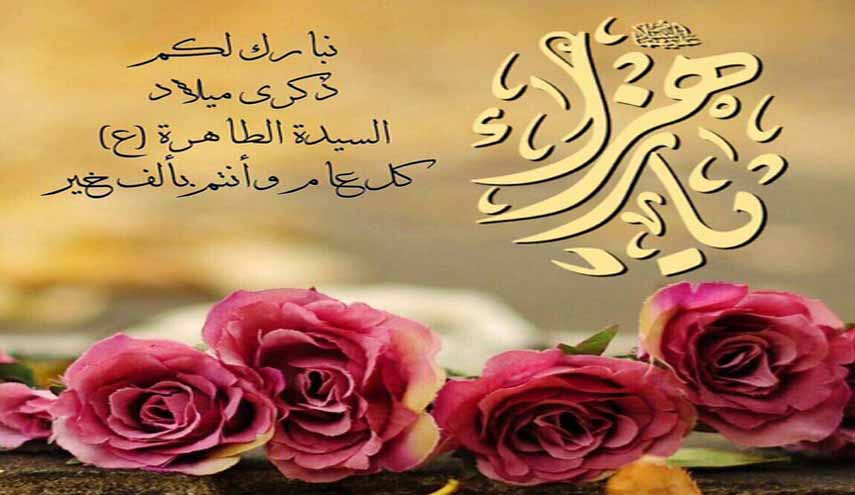 يا زهراء
نبارك لكم
ذكرى ميلاد
السيدة الطاهرة (ع)
كل عام وأنتم بألف خير